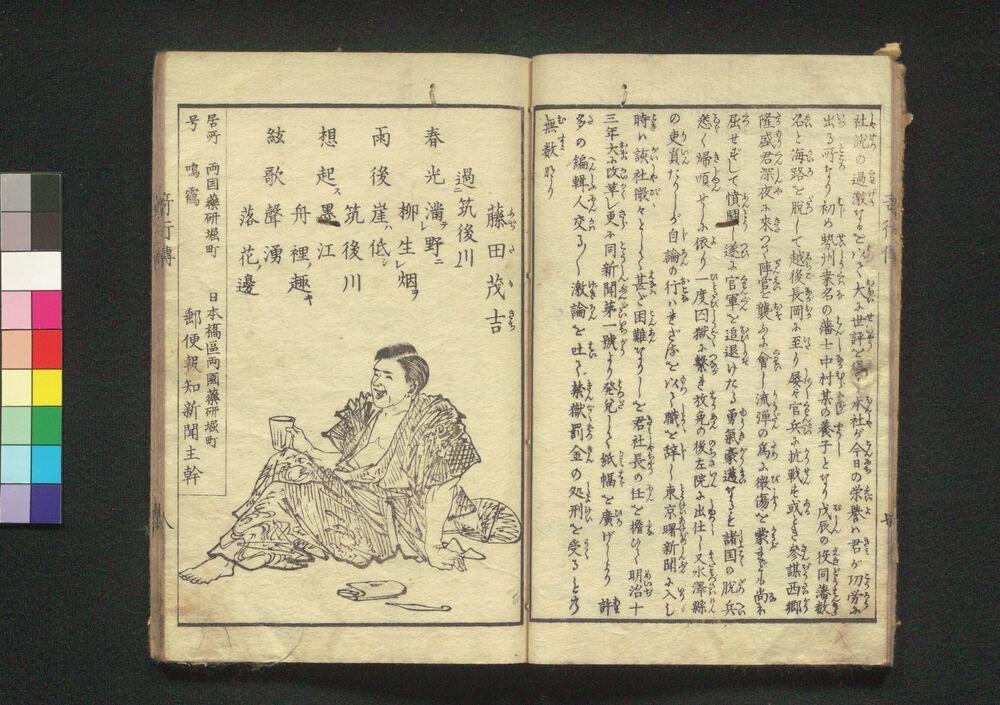 社説の過激なるとにて大に世評を得本社が今日の栄譽ハ君が功労に
出る所なり初め勢州桑名の藩士中村某の養子となり戊辰の役同藩数
名と海路を脱して越後長岡に至り屡々官兵に抗戦し或とき參謀西郷
隆盛君深夜に来つて陣営を襲ふに會し流弾の為に微傷を蒙れども尚ほ
屈せずして憤鬪し遂に官軍を追退けたる勇氣豪邁なると諸国の脱兵
悉く帰順せしに依り一度囚獄に繋き放免の後左院に出仕し又水澤縣
の吏員たりしが自論の行ハれざるを以て職を辞し東京曙新聞に入し
時ハ該社微々として甚ど困難なりしを君社長の任を擔ひて明治十
三年大に改革し更に同新聞第一號より発兌して紙幅を廣げしより許
多の編輯人交る〲激論を吐て禁獄罰金の処刑を受ると
無数なり
藤田茂吉
過筑後川
春光滿野
柳生烟
雨後崖低
筑後川
想起墨江
舟裡趣
絃歌聲湧
落花邊
居所 両国藥研堀町 日本橋區両國藥研堀町
号 鳴鶴 郵便報知新聞主幹